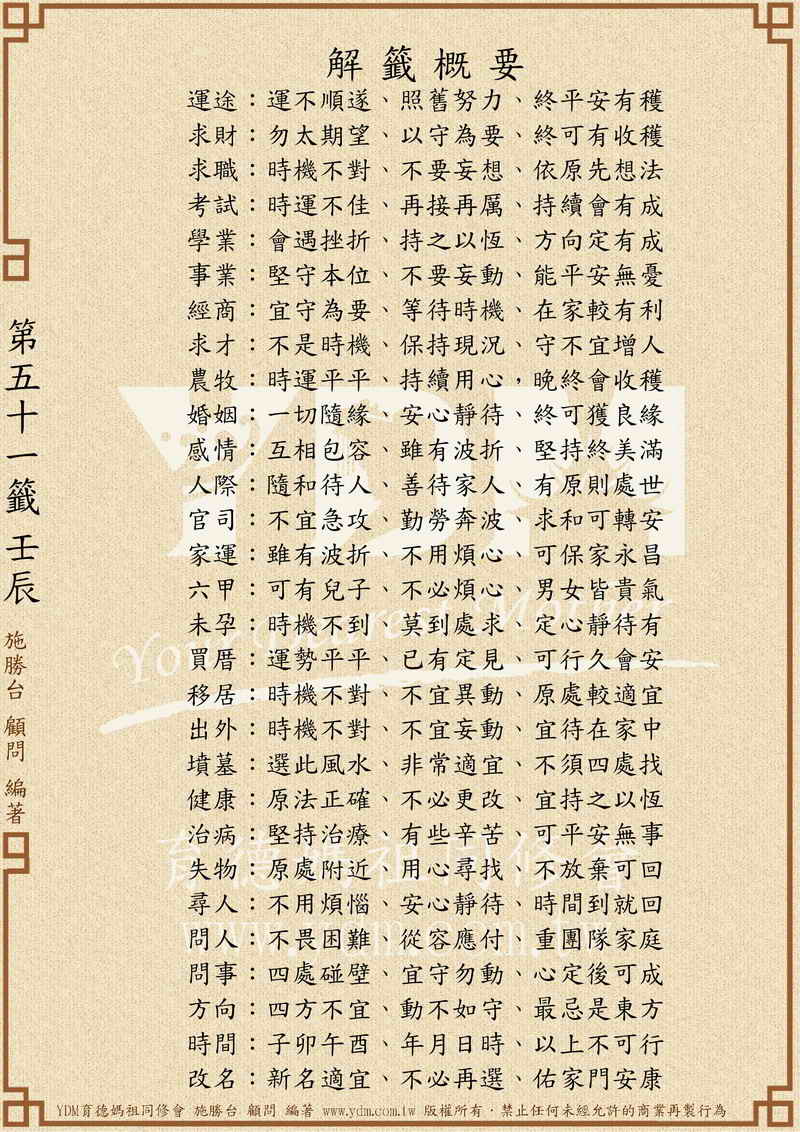 解籤概要
運途：運不順遂、照舊努力、終平安有穫
求財：勿太期望、以守為要、終可有收穫
求職：時機不對、不要妄想、依原先想法
考試：時運不佳、再接再厲、持續會有成
學業：會遇挫折、持之以恆、方向定有成
事業：堅守本位、不要妄動、能平安無憂
經商：宜守為要、等待時機、在家較有利
求才：不是時機、保持現況、守不宜增人
農牧：時運平平、持續用心，晚終會收穫
婚姻：一切隨緣、安心靜待、終可獲良緣
感情：互相包容、雖有波折、堅持終美滿
人際：隨和待人、善待家人、有原則處世
官司：不宜急攻、勤勞奔波、求和可轉安
家運：雖有波折、不用煩心、可保家永昌
六甲：可有兒子、不必煩心、男女皆貴氣
未孕：時機不到、莫到處求、定心靜待有
買厝：運勢平平、已有定見、可行久會安
移居：時機不對、不宜異動、原處較適宜
出外：時機不對、不宜妄動、宜待在家中
墳墓：選此風水、非常適宜、不須四處找
健康：原法正確、不必更改、宜持之以恆
治病：堅持治療、有些辛苦、可平安無事
失物：原處附近、用心尋找、不放棄可回
尋人：不用煩惱、安心靜待、時間到就回
問人：不畏困難、從容應付、重團隊家庭
問事：四處碰壁、宜守勿動、心定後可成
方向：四方不宜、動不如守、最忌是東方
時間：子卯午酉、年月日時、以上不可行
改名：新名適宜、不必再選、佑家門安康
第五十一籤 壬辰
施勝台 顧問 編著
YDM
Your Dearest Mother
育德媽祖同修會
www.ydm.com.tw
YDM育德媽祖同修會 施勝台 顧問 編著 www.ydm.com.tw 版權所有．禁止任何未經允許的商業再製行為